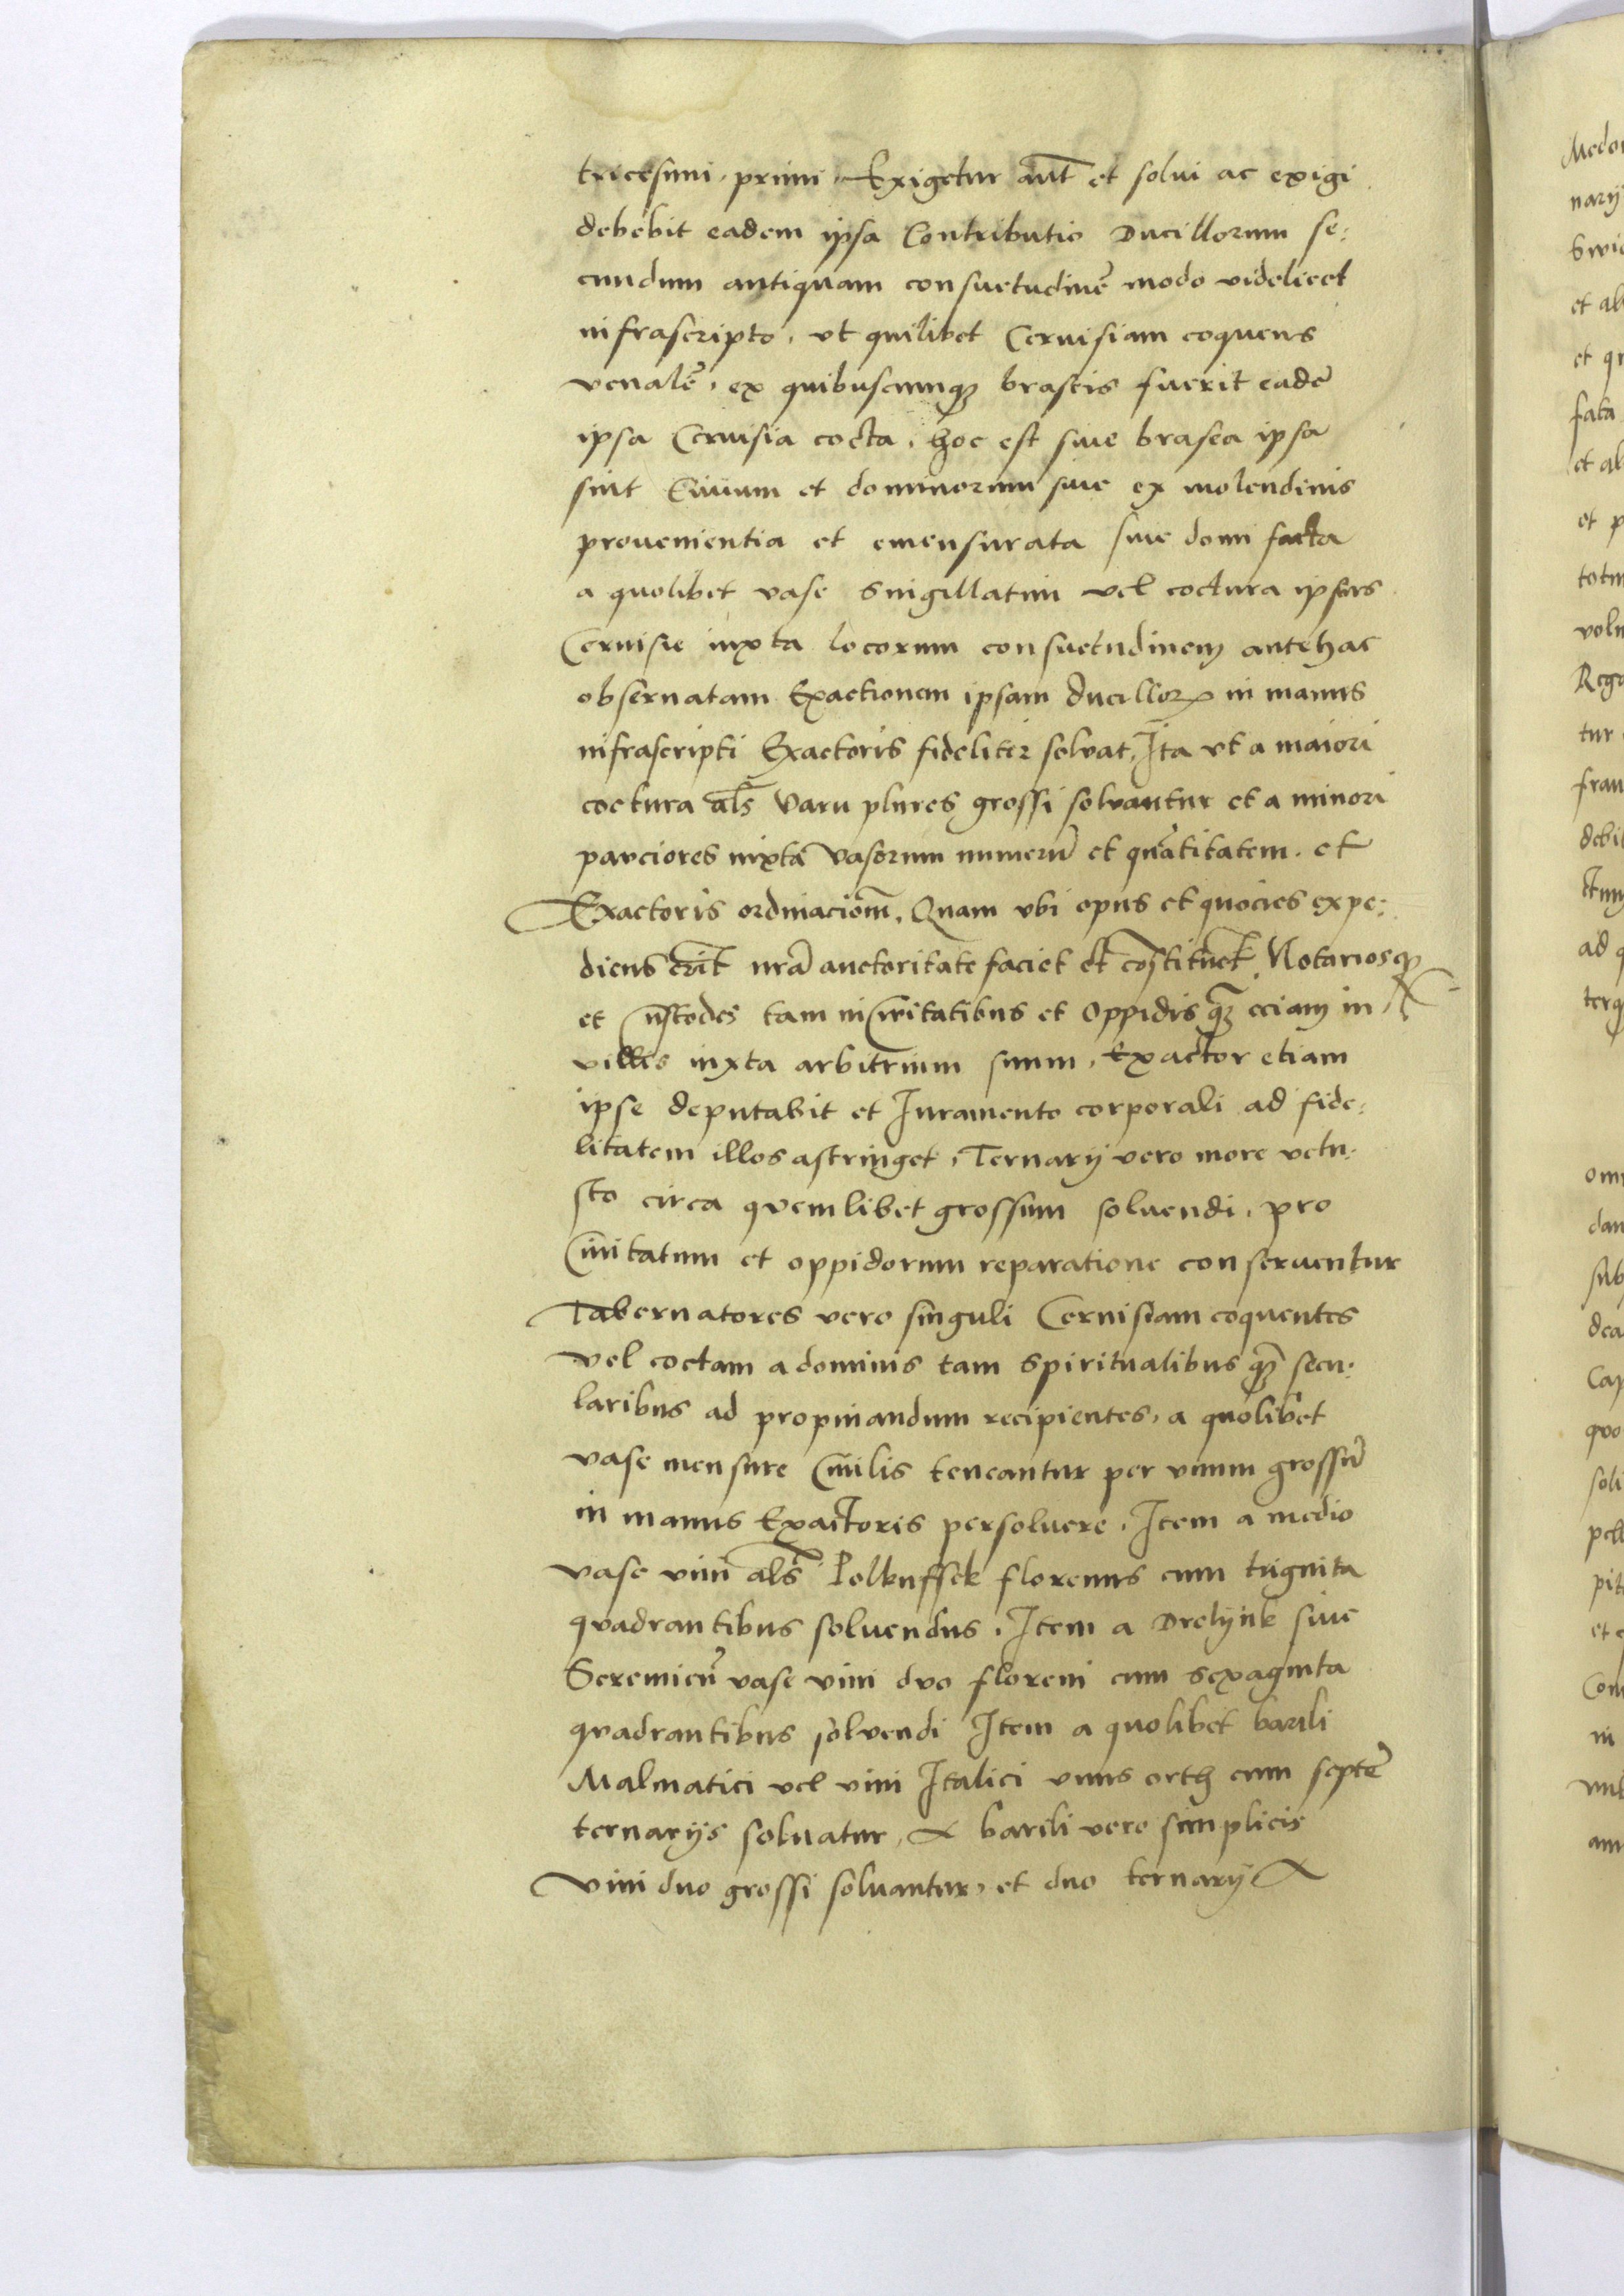 tricesimi primi. Exigetur aut̄ et solui ac exigi
debebit eadem ipsa Contributio Ducillorum se:
cundum antiquam consuetudinē modo videlicet
infrascripto, vt quilibet Ceruisiam coquens
venalē, ex quibuscunqꝫ braseis fuerit eadē
ipsa Ceruisia cocta, hoc est siue brasea ipsa
sint Ciuium et dominorum siue ex molendinis
prouenientia et emensurata siue domi facta
a quolibet vase singillatim vel coctura ipsius
Ceruisie iuxta locorum consuetudinem antehac
obseruatam Exactionem ipsam ducilloꝝ in manus
infrascripti Exactoris fideliter soluat, Ita vt a maiori
coctura al̄s Varu plures grossi soluantur et a minori
parciores iuxta vasorum numerū et quātitatem. et
Exactoris ordinaciōm, Quam vbi opus et quocies expe:
diens erit nr̄a auctoritate faciet et cōstituet, Notariosqꝫ
et custodes tam in Ciuitatibus et Oppidis qꝫ̄ eciam in
villis iuxta arbitrium suum, Exactor etiam
ipse deputabit et Iuramento corporali ad fide:
litatem illos astringet, Ternarij vero more vetu:
sto circa quemlibet grossum soluendi, pro
Ciuitatum et oppidorum reparatione conseruentur
Tabernatores vero singuli Ceruisiam coquentes
vel coctam a dominis tam spiritualibus qꝫ̄ secu:
laribus ad propinandum recipientes, a quolibet
vase mensure Ciuilis teneantur per vnum grossū
in manus Exactoris persoluere. Item a medio
vase vini al̄s Polkuffek florenus cum triginta
quadrantibus soluendus. Item a Drelijnk siue
Seremicn̄ vase vini duo floreni cum sexaginta
quadrantibus soluendi Item a quolibet barili
Malmatici vel vini Italici vnus orth cum septē
ternarijs soluatur, A barili vero simplicis
vini duo grossi soluantur, et duo ternarij A